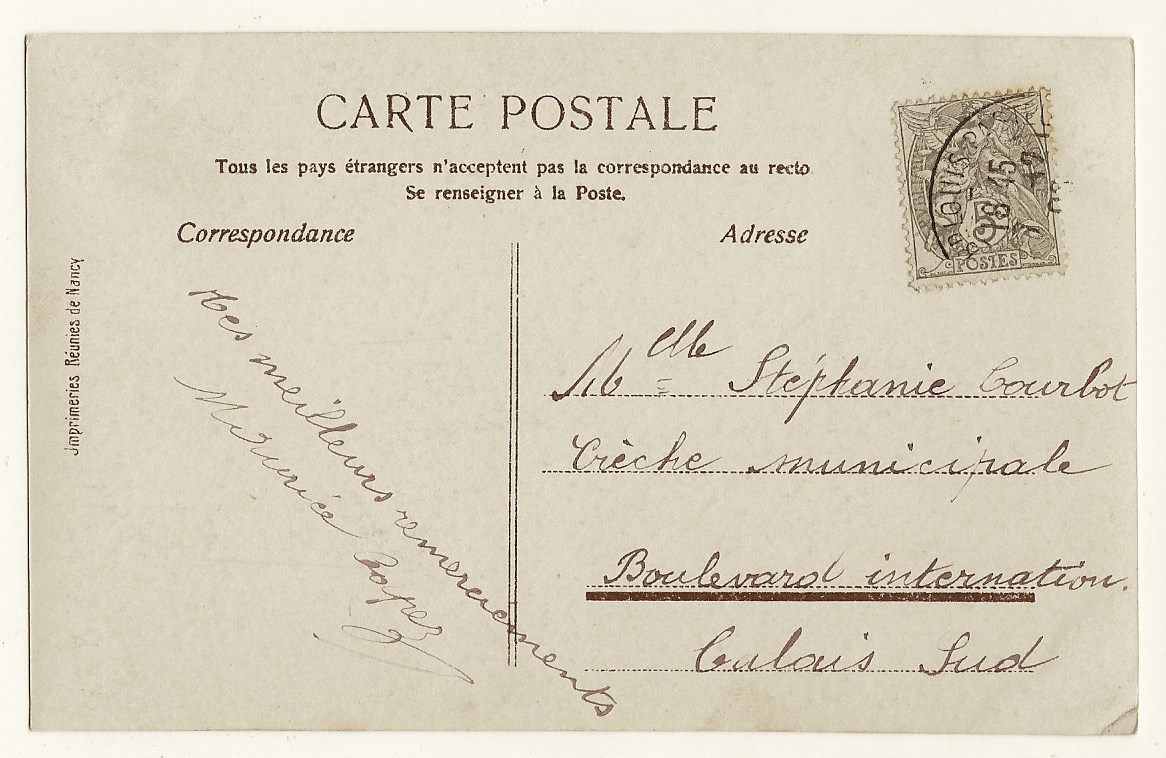 CARTE POSTALE
Tous les pays étrangers n'acceptent pas la correspondance au recto
Se renseigner à la Poste.
Correspondance
Adresse
Imprimeries Réunies de Nancy
Mes meilleurs remerciements
Maurice
POSTES
18 45
Mlle Stéphanie Courbot
Crèche municipale
Boulevard internation.
Calais Sud